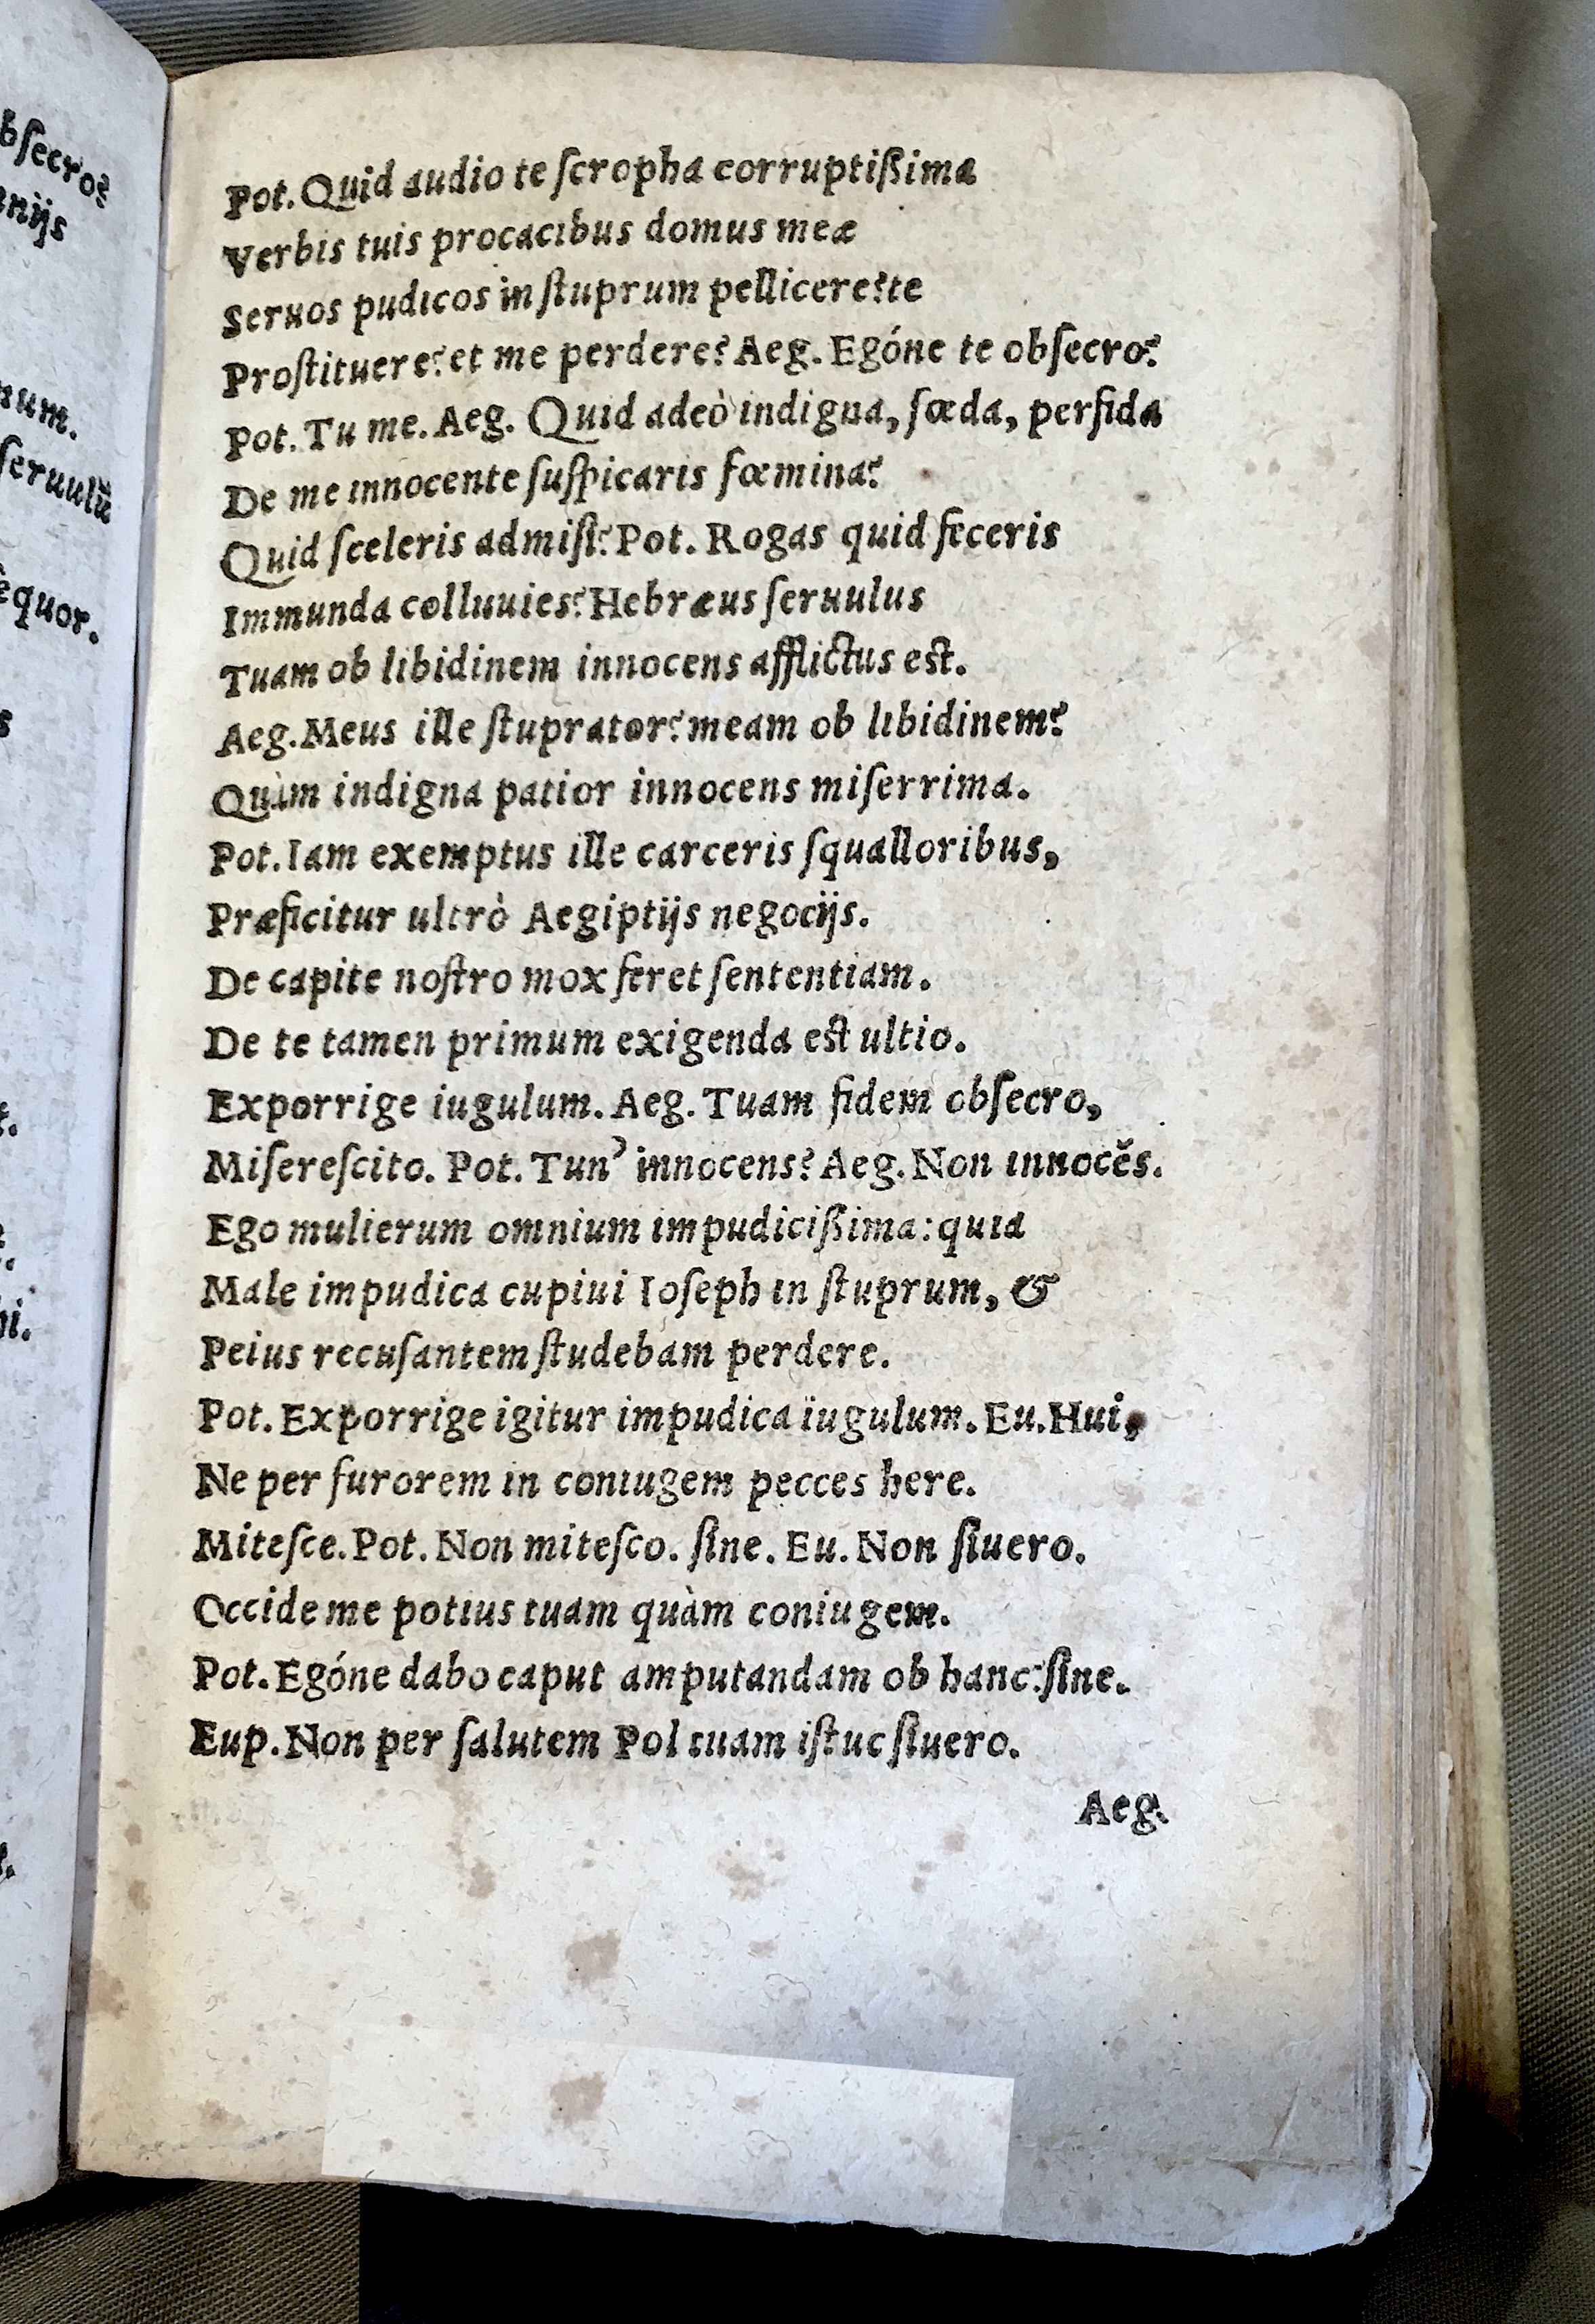 bſecro?
niis
num.
ſeruulū
èquor.
s
hi.
Pot. Quid audio te ſcropha corruptißima
Verbis tuis procacibus domus meæ
Seruos pudicos in ſtuprum pellicere? te
Proſtituere? et me perdere? Aeg. Egóne te obſecro?
Pot. Tu me. Aeg. Quid adeò indigna, ſœda, perfida
De me innocente ſuſpicaris fœmina?
Quid ſceleris admiſi? Pot. Rogas quid feceris
Immunda colluuies? Hebræus ſeruulus
Tuam ob libidinem innocens afflictus est.
Aeg. Meus ille ſtuprator? meam ob libidinem?
Quàm indigna patior innocens miſerrima.
Pot. Iam exemptus ille carceris ſqualloribus,
Præficitur ultrò Aegiptijs negocijs.
De capite noſtro mox feret ſententiam.
De te tamen primum exigenda est ultio.
Exporrige iugulum. Aeg. Tuam fidem obſecro,
Miſereſcito. Pot. Tun' innocens? Aeg. Non innocēs.
Ego mulierum omnium impudicißima: quia
Male impudica cupiui Ioſeph in ſtuprum, &
Peius recuſantem ſtudebam perdere.
Pot. Exporrige igitur impudica iugulum. Eu. Hui,
Ne per furorem in coniugem pecces here.
Miteſce. Pot. Non miteſco. ſine. Eu. Non ſiuero.
Occide me potius tuam quàm coniugem.
Pot. Egóne dabo caput amputandam ob hanc? ſine.
Eup. Non per ſalutem Pol tuam iſtuc ſiuero.
Aeg.